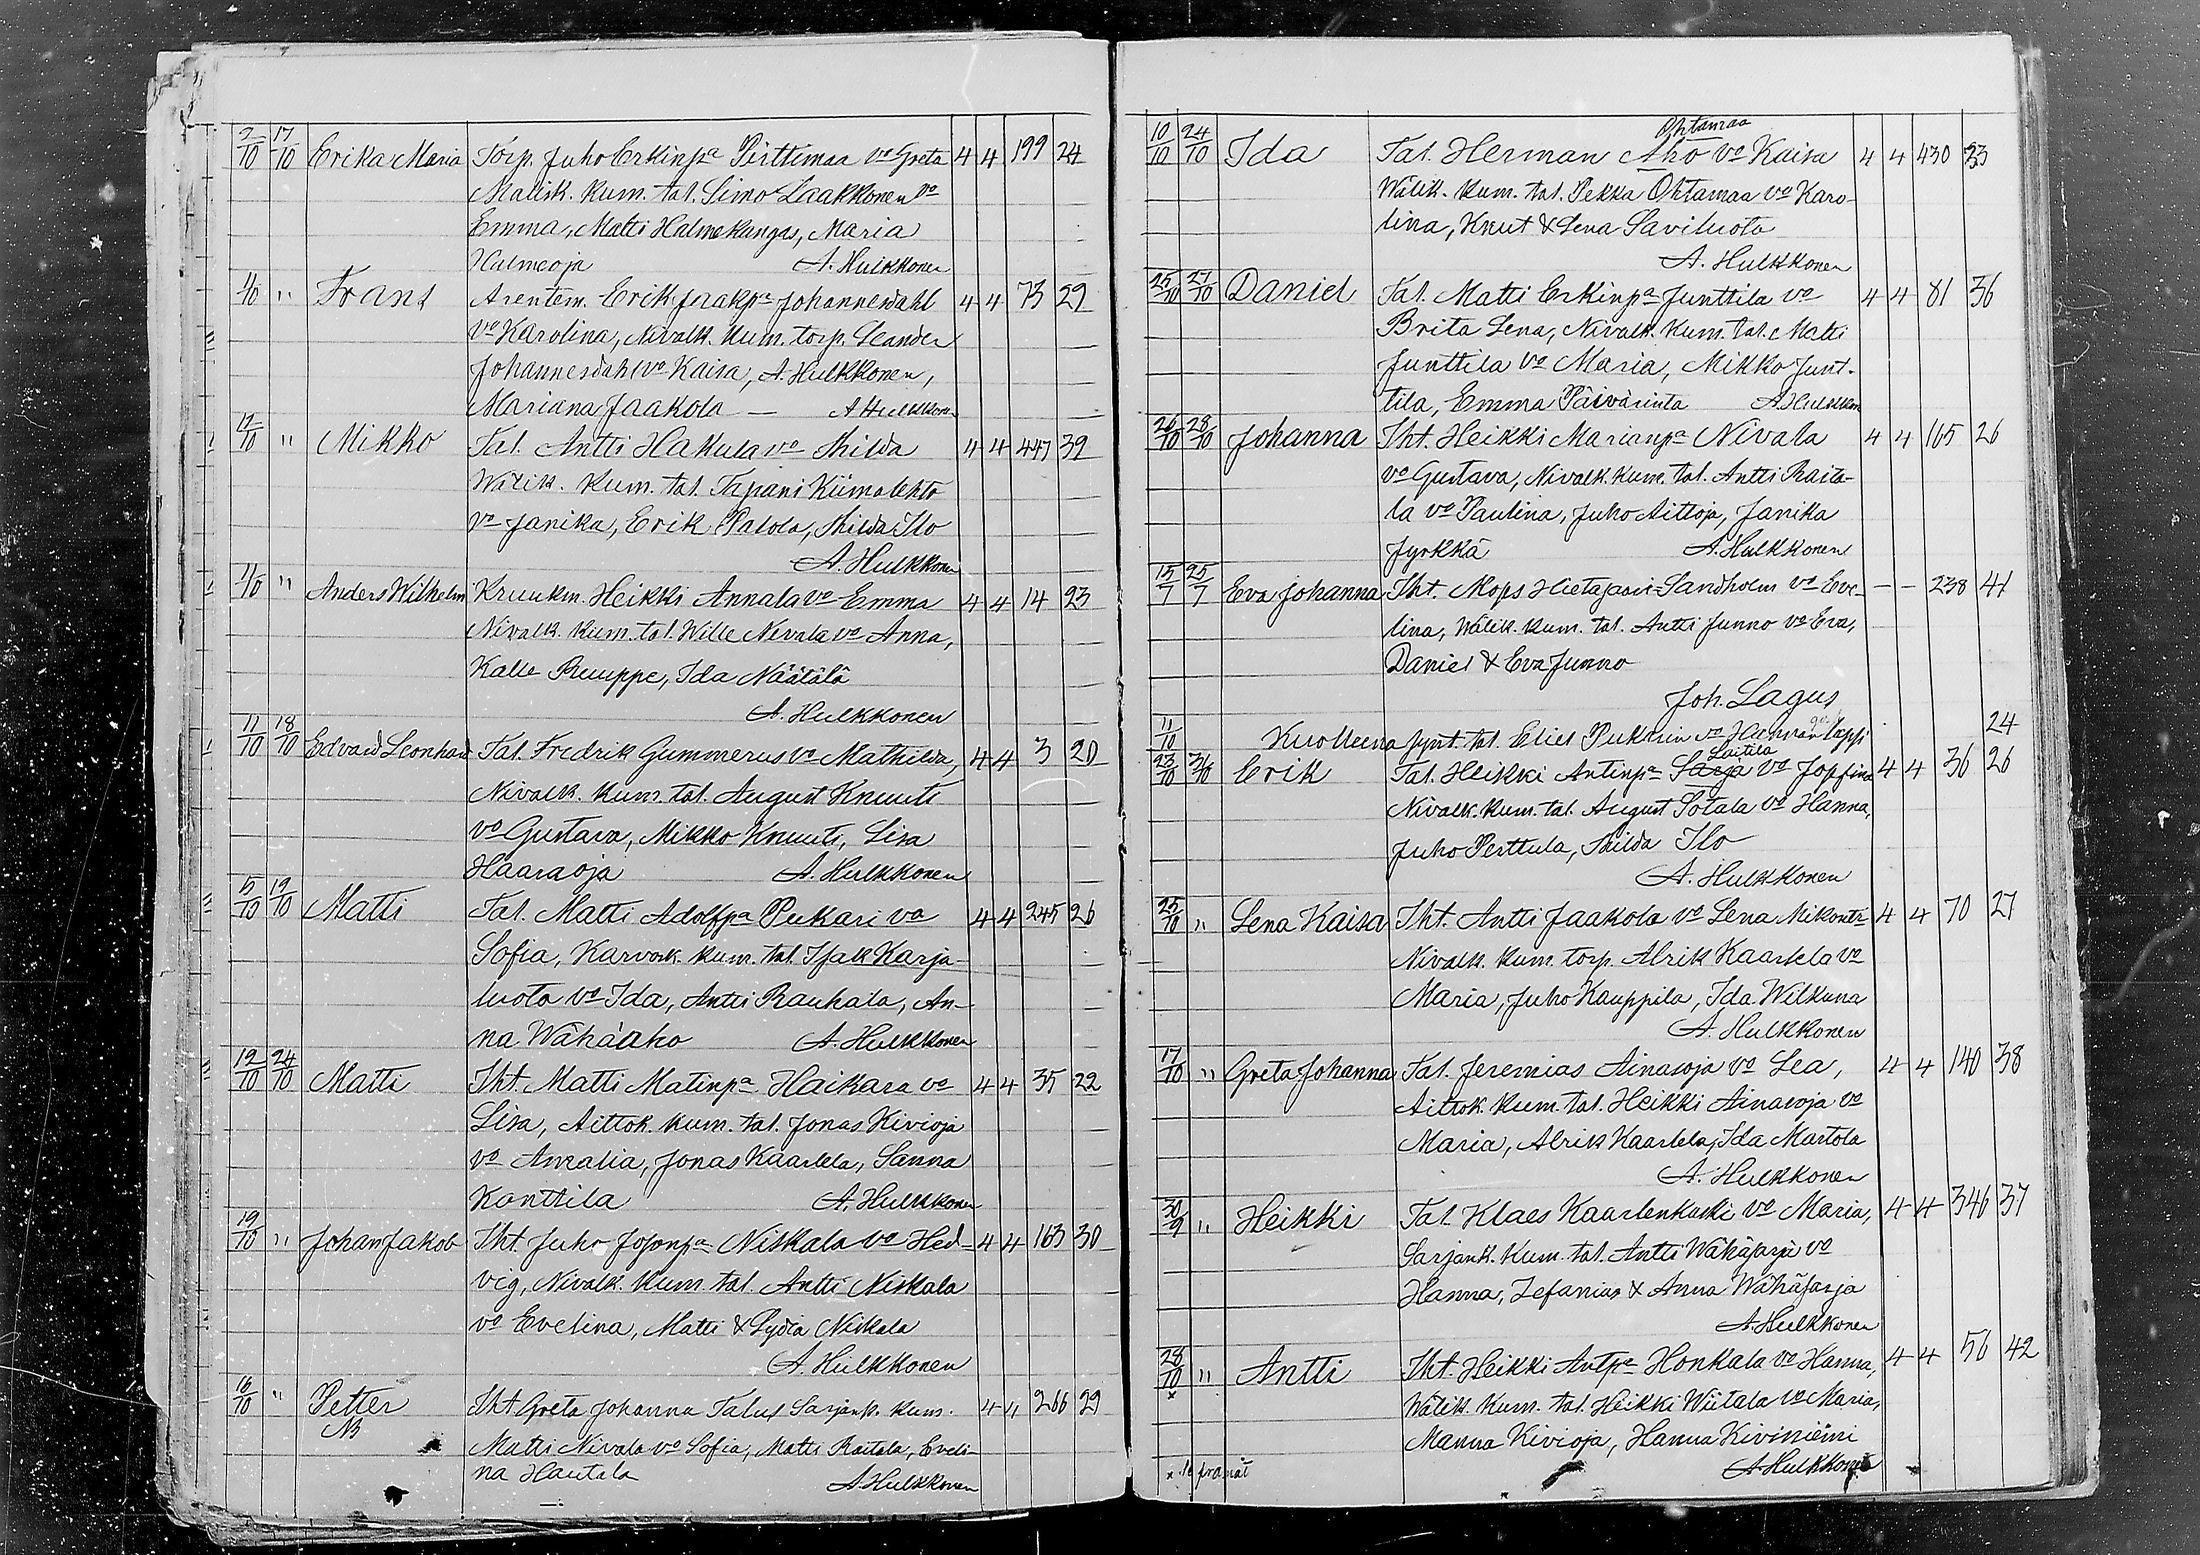 9/10 17/10 Erika Maria Torp. Juho Erkinpa Pirttimaa vo Greta 4 4 199 24
Malisk. Kum. tal. Simo Laakkonen vo
Emma, Matti Halmekangas, Maria
Halmeoja A. Hulkkonen
1/10 " Frans Arentem. Erik Jaakpa Johannesdahl 4 4 73 29
vo Karolina, Nivalk. Kum. torp. Leander
Johannesdahl vo Kaisa, A. Hulkkonen,
Mariana Jaakola — A Hulkkonen
12/10 " Mikko Tal. Antti Hakula vo Hilda 4 4 447 39
Wälik. Kum. tal. Tapani Kiimalehto
vo Janika, Erik Palola, Hilda Ilo
A. Hulkkonen
11/10 " Anders Wilhelm Kruukm. Heikki Annala vo Emma 4 4 14 23
Nivalk. Kum. tal. Wille Nivala vo Anna,
Kalle Ruuppe, Ida Näätälä
A. Hulkkonen
11/10 18/10 Edvard Leonhard Tal. Fredrik Gummerus vo Mathilda, 4 4 3 20
Nivalk. Kum. tal. August Knuuti
vo Gustava, Mikko Knuuti, Lisa
Haaraoja A. Hulkkonen
5/10 19/10 Matti Tal. Matti Adolfpa Pukari vo 4 4 245 26
Sofia, Karvosk. Kum. tal. Isak Karja-
luoto vo Ida, Antti Rauhala, An-
na Wähäaho A. Hulkkonen
19/10 24/10 Matti Iht. Matti Matinpa Haikara vo 4 4 35 22
Lisa, Aittok. Kum. tal. Jonas Kivioja
vo Amalia, Jonas Kaarlela, Sanna
Konttila A. Hulkkonen
19/10 " Johan Jakob Iht. Juho Josonpa Niskala vo Hed- 4 4 163 30
vig, Nivalk. Kum. tal. Antti Niskala
vo Evelina, Matti & Lydia Niskala
A. Hulkkonen
16/10 " Petter Iht Greta Johanna Talus Sarjank. Kum. 4 " 266 29
Matti Nivala vo Sofia, Matti Raitala, Eveli-
na Hautala A. Hulkkonen
Ohtamaa
10/10 24/10 Ida Tal. Herman Aho vo Kaisa 4 4 430 23
Wälik. Kum. tal. Pekka Ohtamaa vo Karo-
lina, Knut & Lena Saviluoto
A. Hulkkonen
25/10 27/10 Daniel Tal. Matti Erkinpa Junttila vo 4 4 81 36
Brita Lena, Nivalk. Kum. tal. Matti
Junttila vo Maria, Mikko Junt-
tila, Emma Päivärinta A. Hulkkon
26/10 28/10 Johanna Iht. Heikki Marianpa Nivala 4 4 165 26
vo Gustava, Nivalk. Kum. tal. Antti Raita-
la vo Paulina, Juho Aittoja, Janika
Jyrkkä A. Hulkkonen
15/7 25/7 Eva Johanna Iht. Mops Hietajärvi-Sandholm vo Eve- — — 238 41
lina, Wälik. Kum. tal. Antti Junno vo Eva,
Daniel & Eva Junno
Joh. Lagus
11/10 Kuolleena synt. tal. Elias Pukarin vo Hannan lapsi 24
Laitila
23/10 31/10 Erik Tal. Heikki Antinpa Sarja vo Josfina 4 4 36 26
Nivalk. Kum. tal. August Sotala vo Hanna,
Juho Perttula, Hilda Ilo
A. Hulkkonen
25/10 " Lena Kaisa Iht. Antti Jaakola vo Lena Mikontr 4 4 70 27
Nivalk. Kum. torp. Alrik Kaarlela vo
Maria, Juho Kauppila, Ida Wilkuna
A. Hulkkonen
17/10 " Greta Johanna Tal. Jeremias Ainasoja vo Lea, 4 4 140 38
Aittok. Kum. tal. Heikki Ainasoja vo
Maria, Alrik Kaarlela, Ida Martola
A. Hulkkonen
30/9 " Heikki Tal. Klaes Kaarlenkoski vo Maria, 4 4 346 37
Sarjank. Kum. tal. Antti Wähäsarja vo
Hanna, Zefanias & Anna Wähäsarja
A. Hulkkonen
28/10 " Antti Iht. Heikki Antpa Honkala vo Hanna, 4 4 56 42
x Wälik. Kum. tal. Heikki Wiitala vo Maria,
Manna Kivioja, Hanna Kiviniemi
A. Hulkkonen